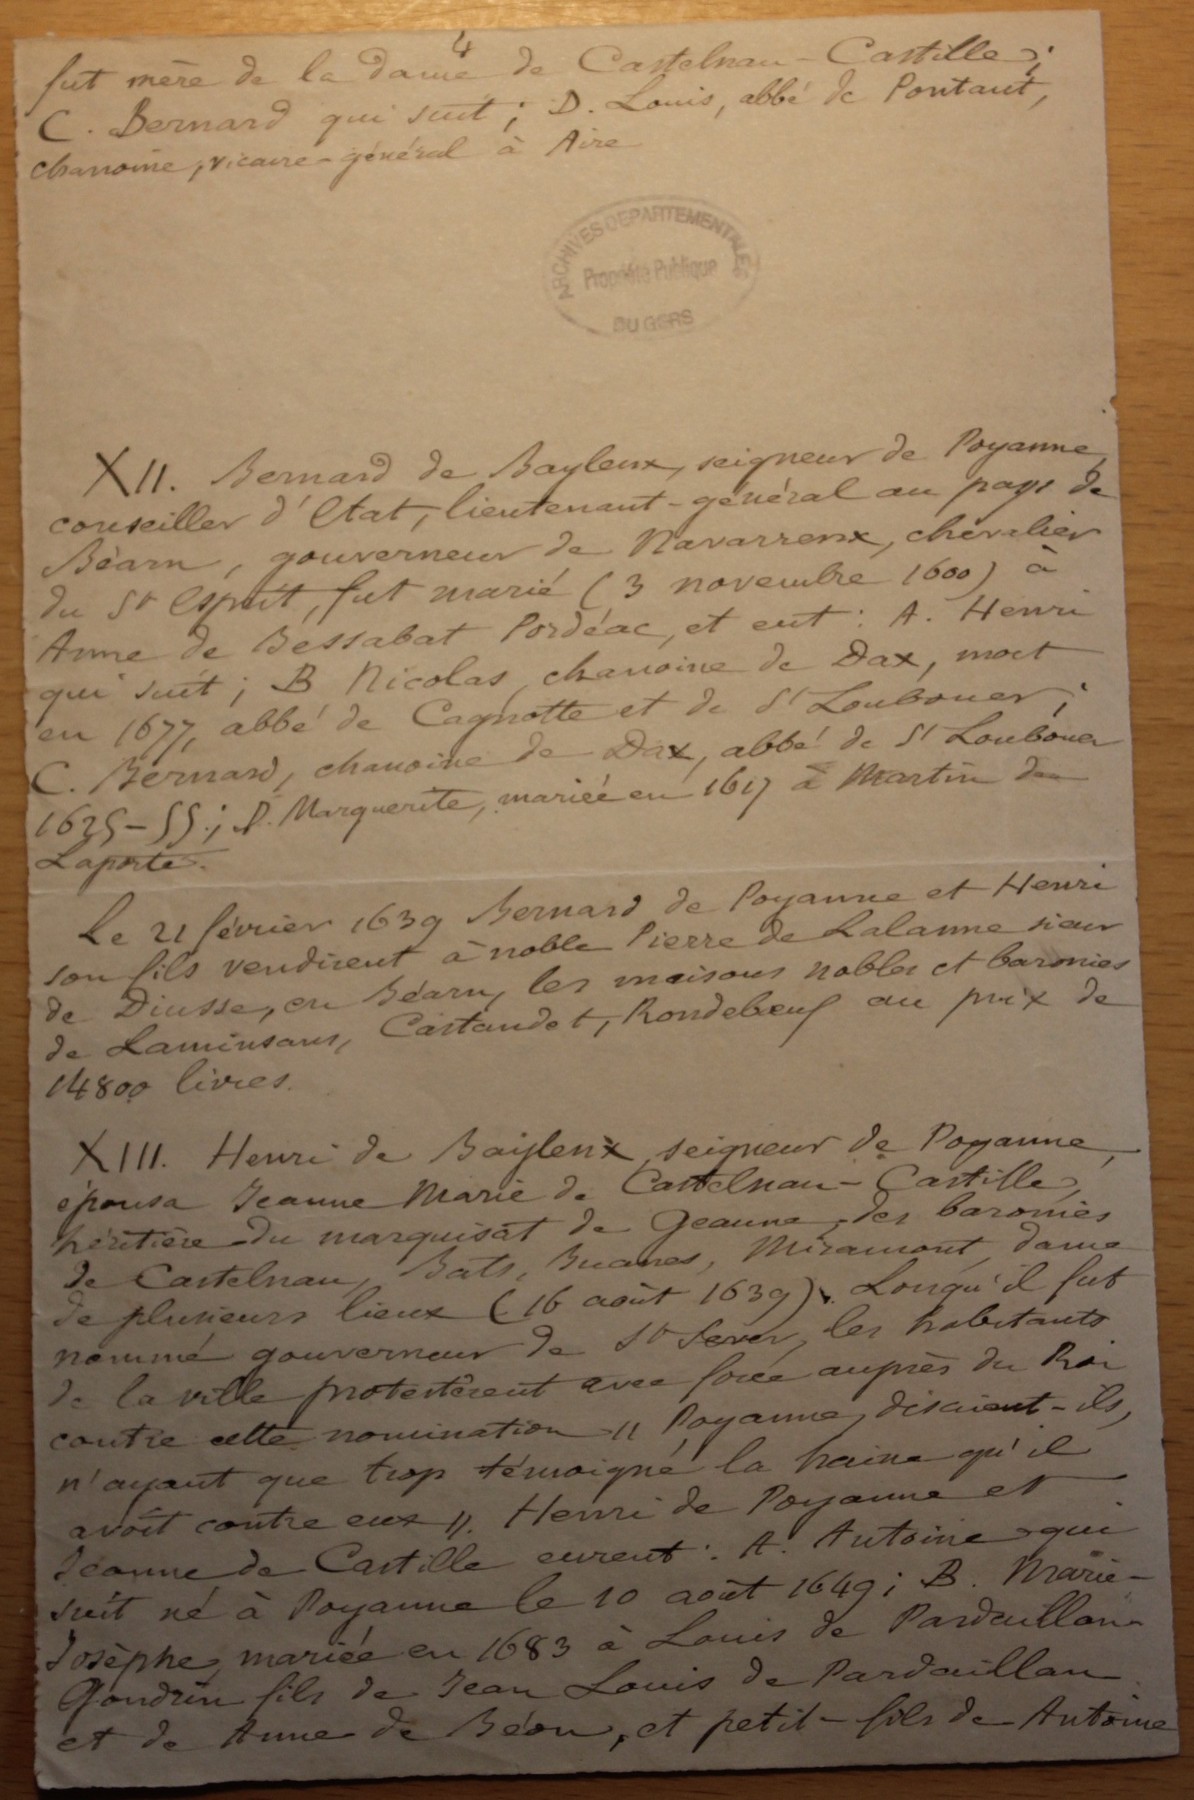 4
fut mère de la dame de Castelnau-Castille;
C. Bernard qui suit; D. Louis, abbé de Pontaut,
chanoine, vicaire-général à Aire
ARCHIVES DEPARTEMENTALES
Propriété Publique
DU GERS
XII. Bernard de Baylenx, seigneur de Poyanne,
conseiller d'Etat, lieutenant-général au pays de
Béarn, gouverneur de Navarrenx, chevalier
du St Esprit, fut marié (3 novembre 1600) à
Anne de Bessabat Pordéac, et eut: A. Henri
qui suit; B Nicolas, chanoine de Dax, mort
en 1677, abbé de Cagnotte et de St Loubouer;
C. Bernard, chanoine de Dax, abbé de St Loubouer
1625-55.; D. Marguerite, mariée en 1617 à Martin de
Laporte.
Le 21 février 1639 Bernard de Poyanne et Henri
son fils vendirent à noble Pierre de Lalanne sieur
de Diusse, en Béarn, les maisons nobles et baronies
de Laminsans, Castandet, Rondebœuf au prix de
14800 livres.
XIII. Henri de Baylenx, seigneur de Poyanne,
épousa Jeanne Marie de Castelnau-Castille,
héritière du marquisat de Geaune, des baronies
de Castelnau, Bats, Buanes, Miramont, dame
de plusieurs lieux (16 août 1639). Lorsqu'il fut
nommé gouverneur de St Sever, les habitants
de la ville protestèrent avec force auprès du Roi
contre cette nomination " Poyanne, disaient-ils,
n'ayant que trop témoigné la haine qu'il
avoit contre eux ". Henri de Poyanne et
Jeanne de Castille eurent: A. Antoine qui
suit né à Poyanne le 10 août 1649; B. Marie-
Josèphe, mariée en 1683 à Louis de Pardaillan-
Gondrin fils de Jean Louis de Pardaillan
et de Anne de Béon, et petit-fils de Antoine